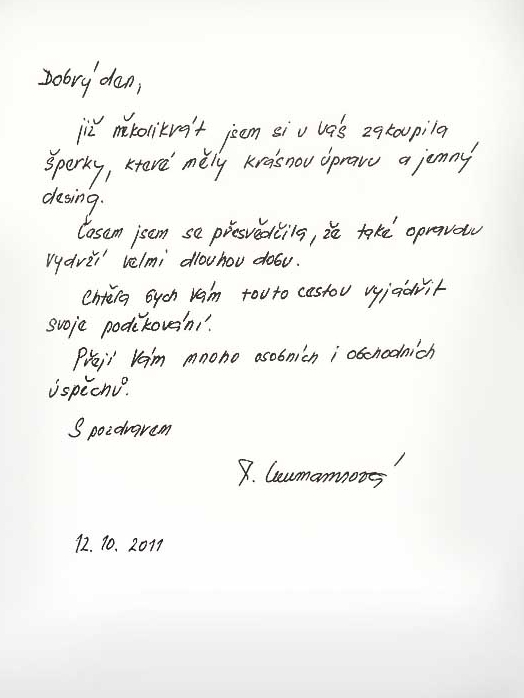 Dobrý den,
již několikrát jsem si u Vás zakoupila
šperky, které měly krásnou úpravu a jemný
desing.
Časem jsem se přesvědčila, že také opravdu
vydrží velmi dlouhou dobu.
Chtěla bych Vám touto cestou vyjádřit
svoje poděkování.
Přeji Vám mnoho osobních i obchodních
úspěchů.
S pozdravem
12. 10. 2011